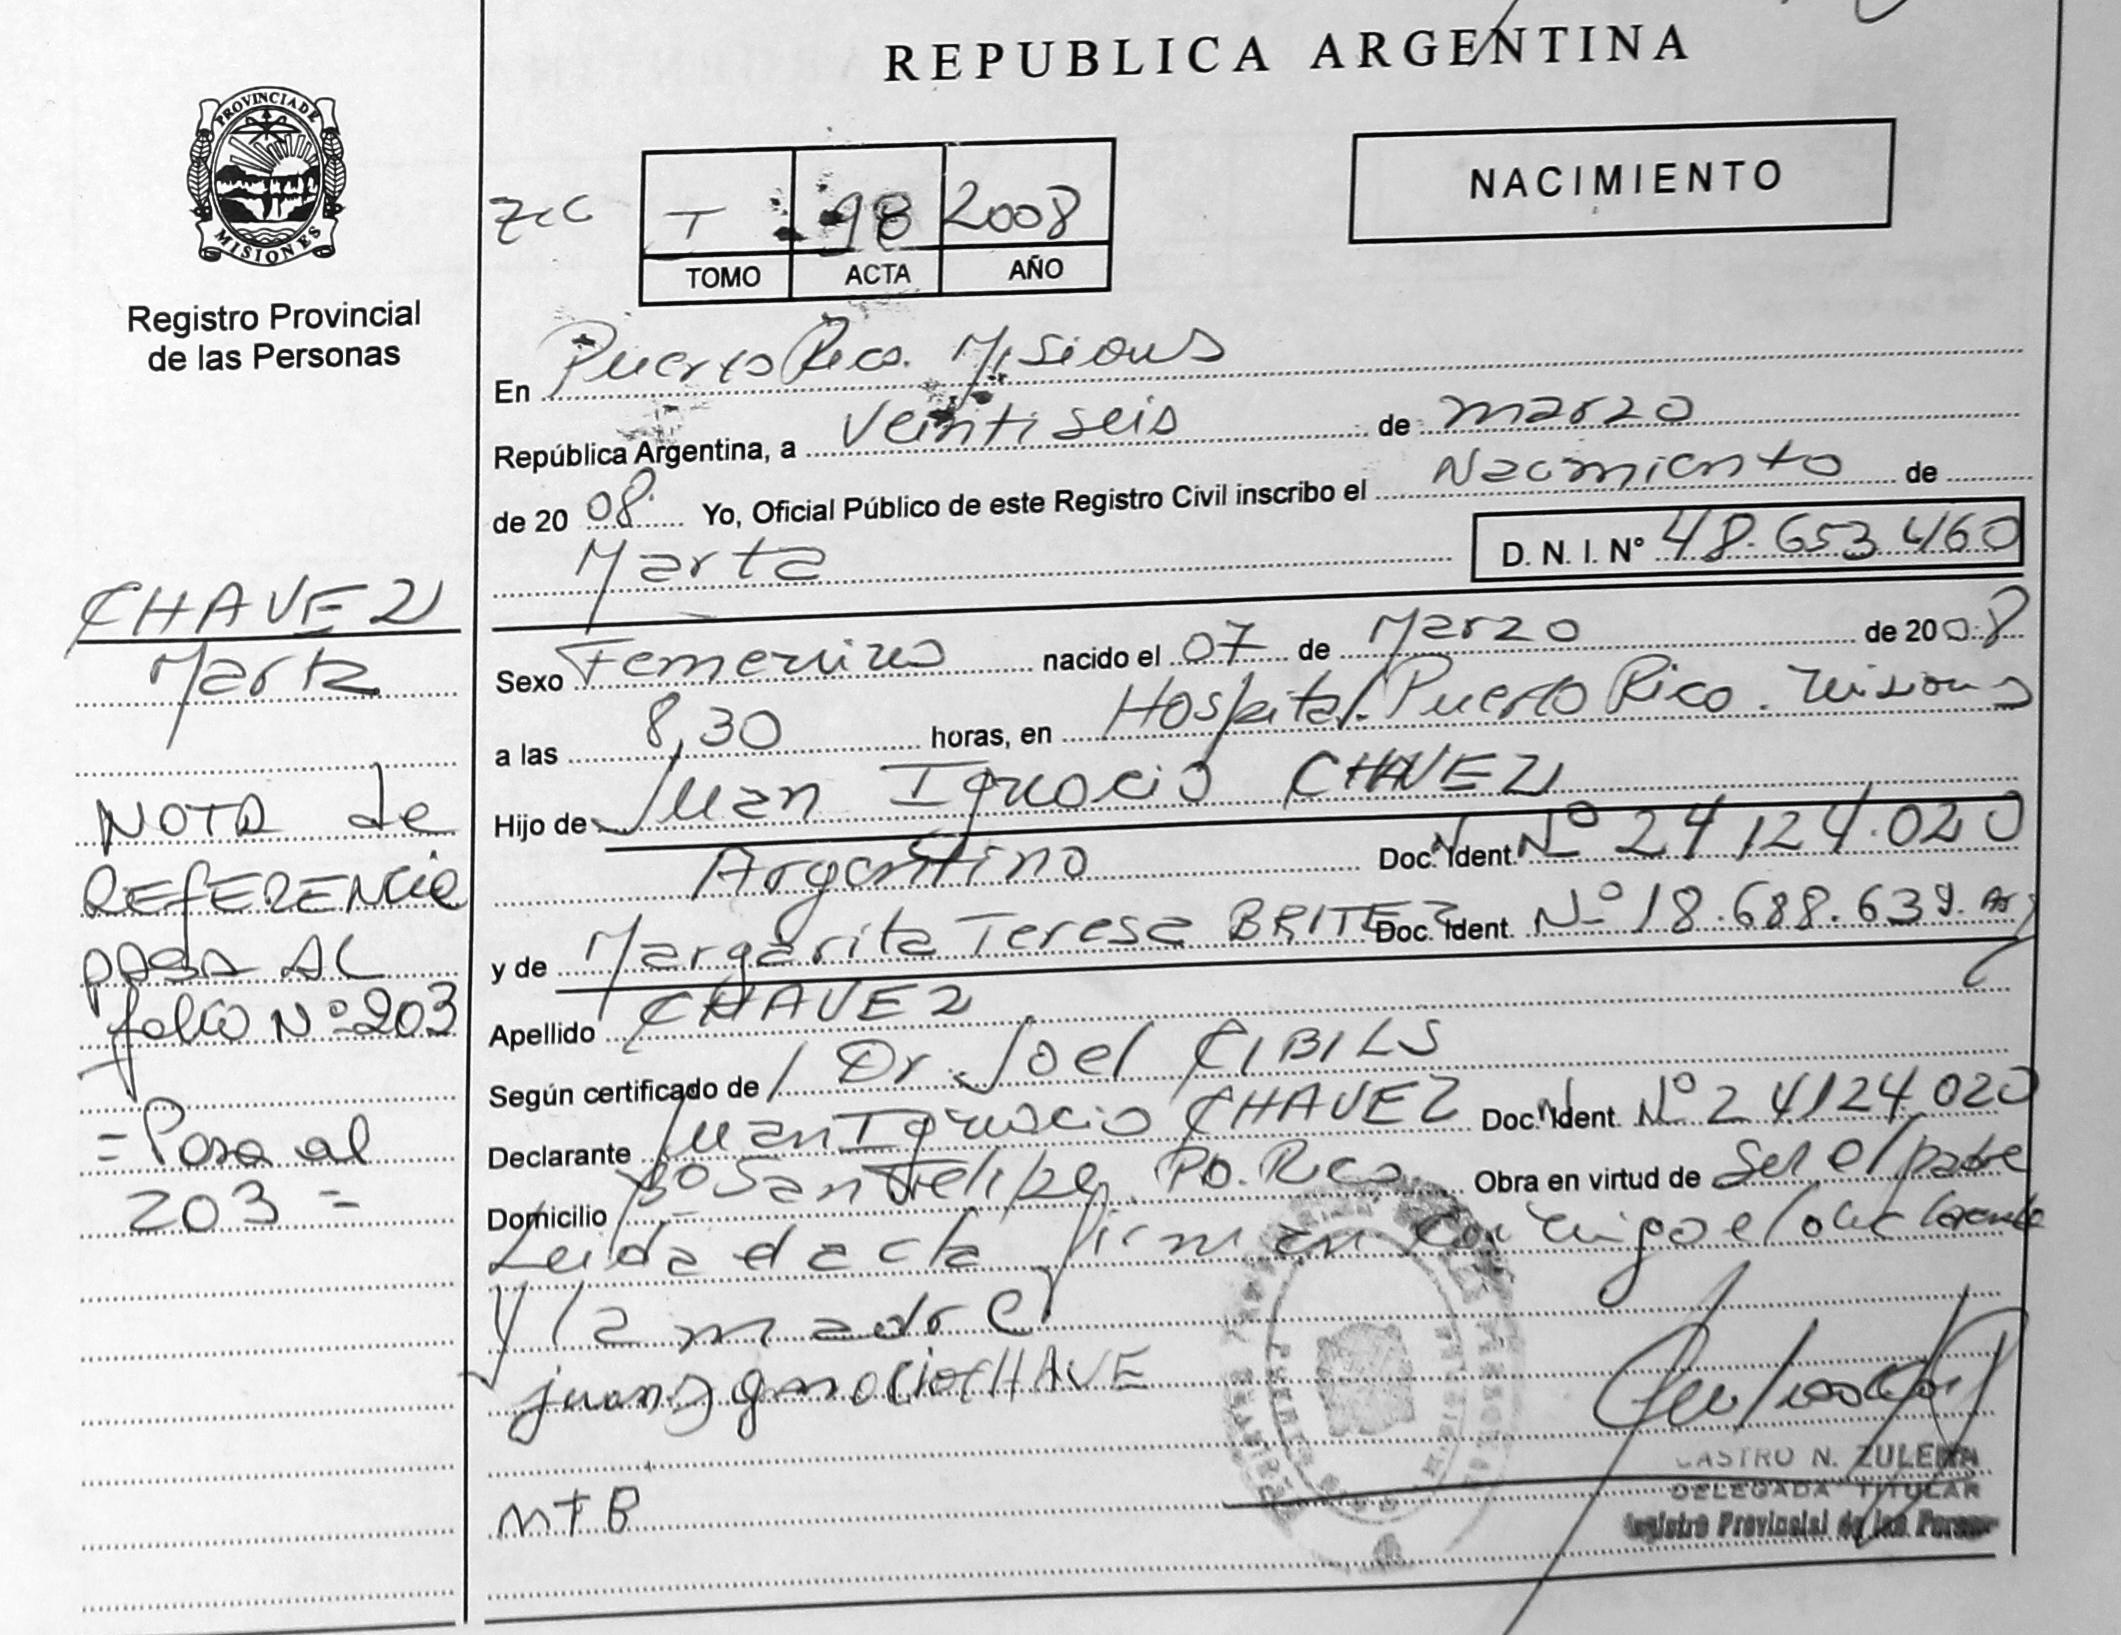 REPUBLICA ARGENTINA
PROVINCIA DE
MISIONES
Registro Provincial
de las Personas
NACIMIENTO
T 98 2008
TOMO ACTA AÑO
En Puerto Rico. Misiones
República Argentina, a Veintiseis de marzo
de 20 08 Yo, Oficial Público de este Registro Civil inscribo el Nacimiento de
Marta D. N. I. N° 48.653.460
CHAVEZ
Marta
Sexo Femenino nacido el 07 de Marzo de 2008
a las 8,30 horas, en Hospital. Puerto Rico. Misiones
Hijo de Juan Ignacio CHAVEZ
Argentino Doc. Ident. N° 24124.020
y de Margarita Teresa BRITEZ Doc. Ident. N° 18.688.639. Arg
Apellido CHAVEZ
Según certificado de Dr. Joel CIBILS
Declarante Juan Ignacio CHAVEZ Doc. Ident. N° 24124.020
Domicilio B° San Felipe. Pto. Rico Obra en virtud de Ser el padre
Leida el acta firman conmigo el declarante
y la madre
juan Ignacio CHAVE
MTB
NOTA de
REFERENCIA
PASA AL
folio N° 203
= Pasa al
203 =
CASTRO N. ZULEMA
DELEGADA TITULAR
Registro Provincial de las Personas